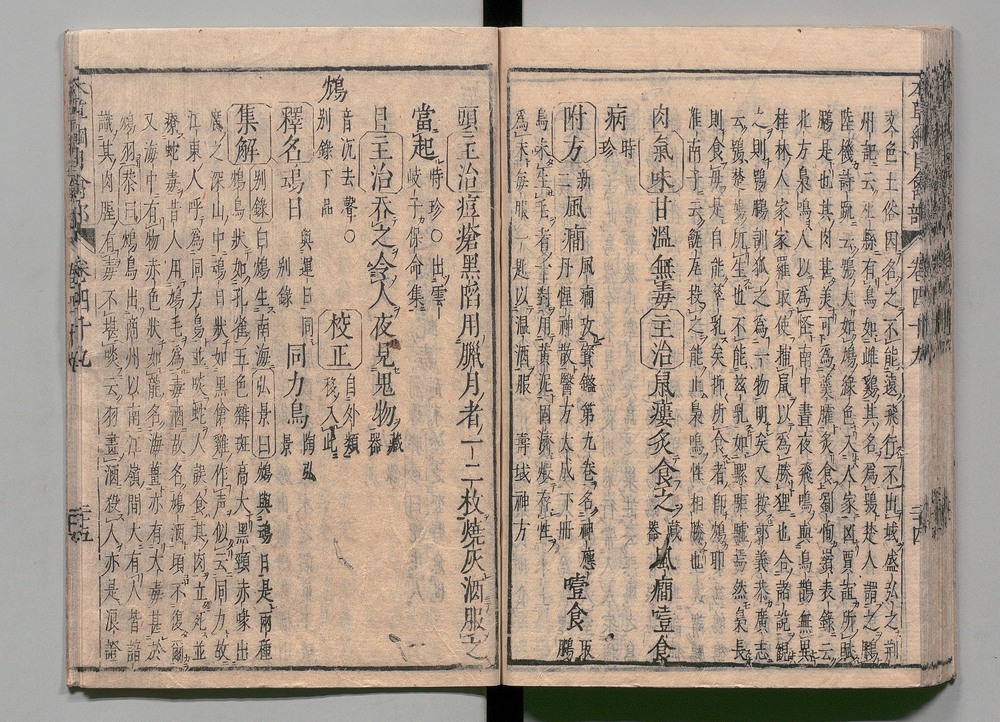 文色土俗因名之不能遠飛行不出域盛弘之荊
州記云巫縣有鳥如雌雞其名為鴞楚人謂之鵩
陸機詩疏云鴞大如鳩綠色入人家凶賈誼所賦
鵩是也其肉甚美可為羹臛炙食劉恂嶺表錄云
北方梟鳴人以為怪南中晝夜飛鳴與烏鵲無異
桂林人家家羅取使捕鼠以為勝狸也合諸說觀
之則鴞鵩訓狐之為一物明矣又按郭義恭廣志
云鴞楚鳩所生也不能滋乳如騾驢焉然梟長
則食母是自能孳乳矣抑所食者即鴞耶
淮南子云甑瓦投之能止梟鳴性相勝也
肉 氣味 甘溫無毒 主治 鼠瘻炙食之 藏器 風癇噎食
病 時珍
附方 新二 風癇 風癇攷寶鑑第九卷名神應丹惺神散醫方大成下冊 噎食 取鵩
鳥未生毛者一對用黃泥固濟煅存性
為末每服一匙以温酒服 壽域神方
頭 主治 痘瘡黑陷用臘月者一二枚燒灰酒服之
當起 時珍○出雲岐子保命集
目 主治 吞之令人夜見鬼物 藏器
鴆 音沉去聲○別錄下品 校正 自外類移入此
釋名 鴆日 與運日同別錄 同力鳥 陶弘景
集解 別錄曰鴆生南海弘景曰鴆與鴆日是兩種
鴆鳥狀如孔雀五色雜斑高大黑頸赤喙出
廣之深山中鴆日狀如黑傖雞作声似云同力故
江東人呼為同力鳥並啖蛇人誤食其肉立死並
療蛇毒昔人用鴆毛為毒酒故名鴆酒頃不復爾
又海中有物赤色狀如龍名海薑亦有大毒甚於
鴆羽恭曰鴆鳥出商州以南江嶺間大有人皆諳
識其肉腥有毒不堪啖云羽畫酒殺人亦是浪證